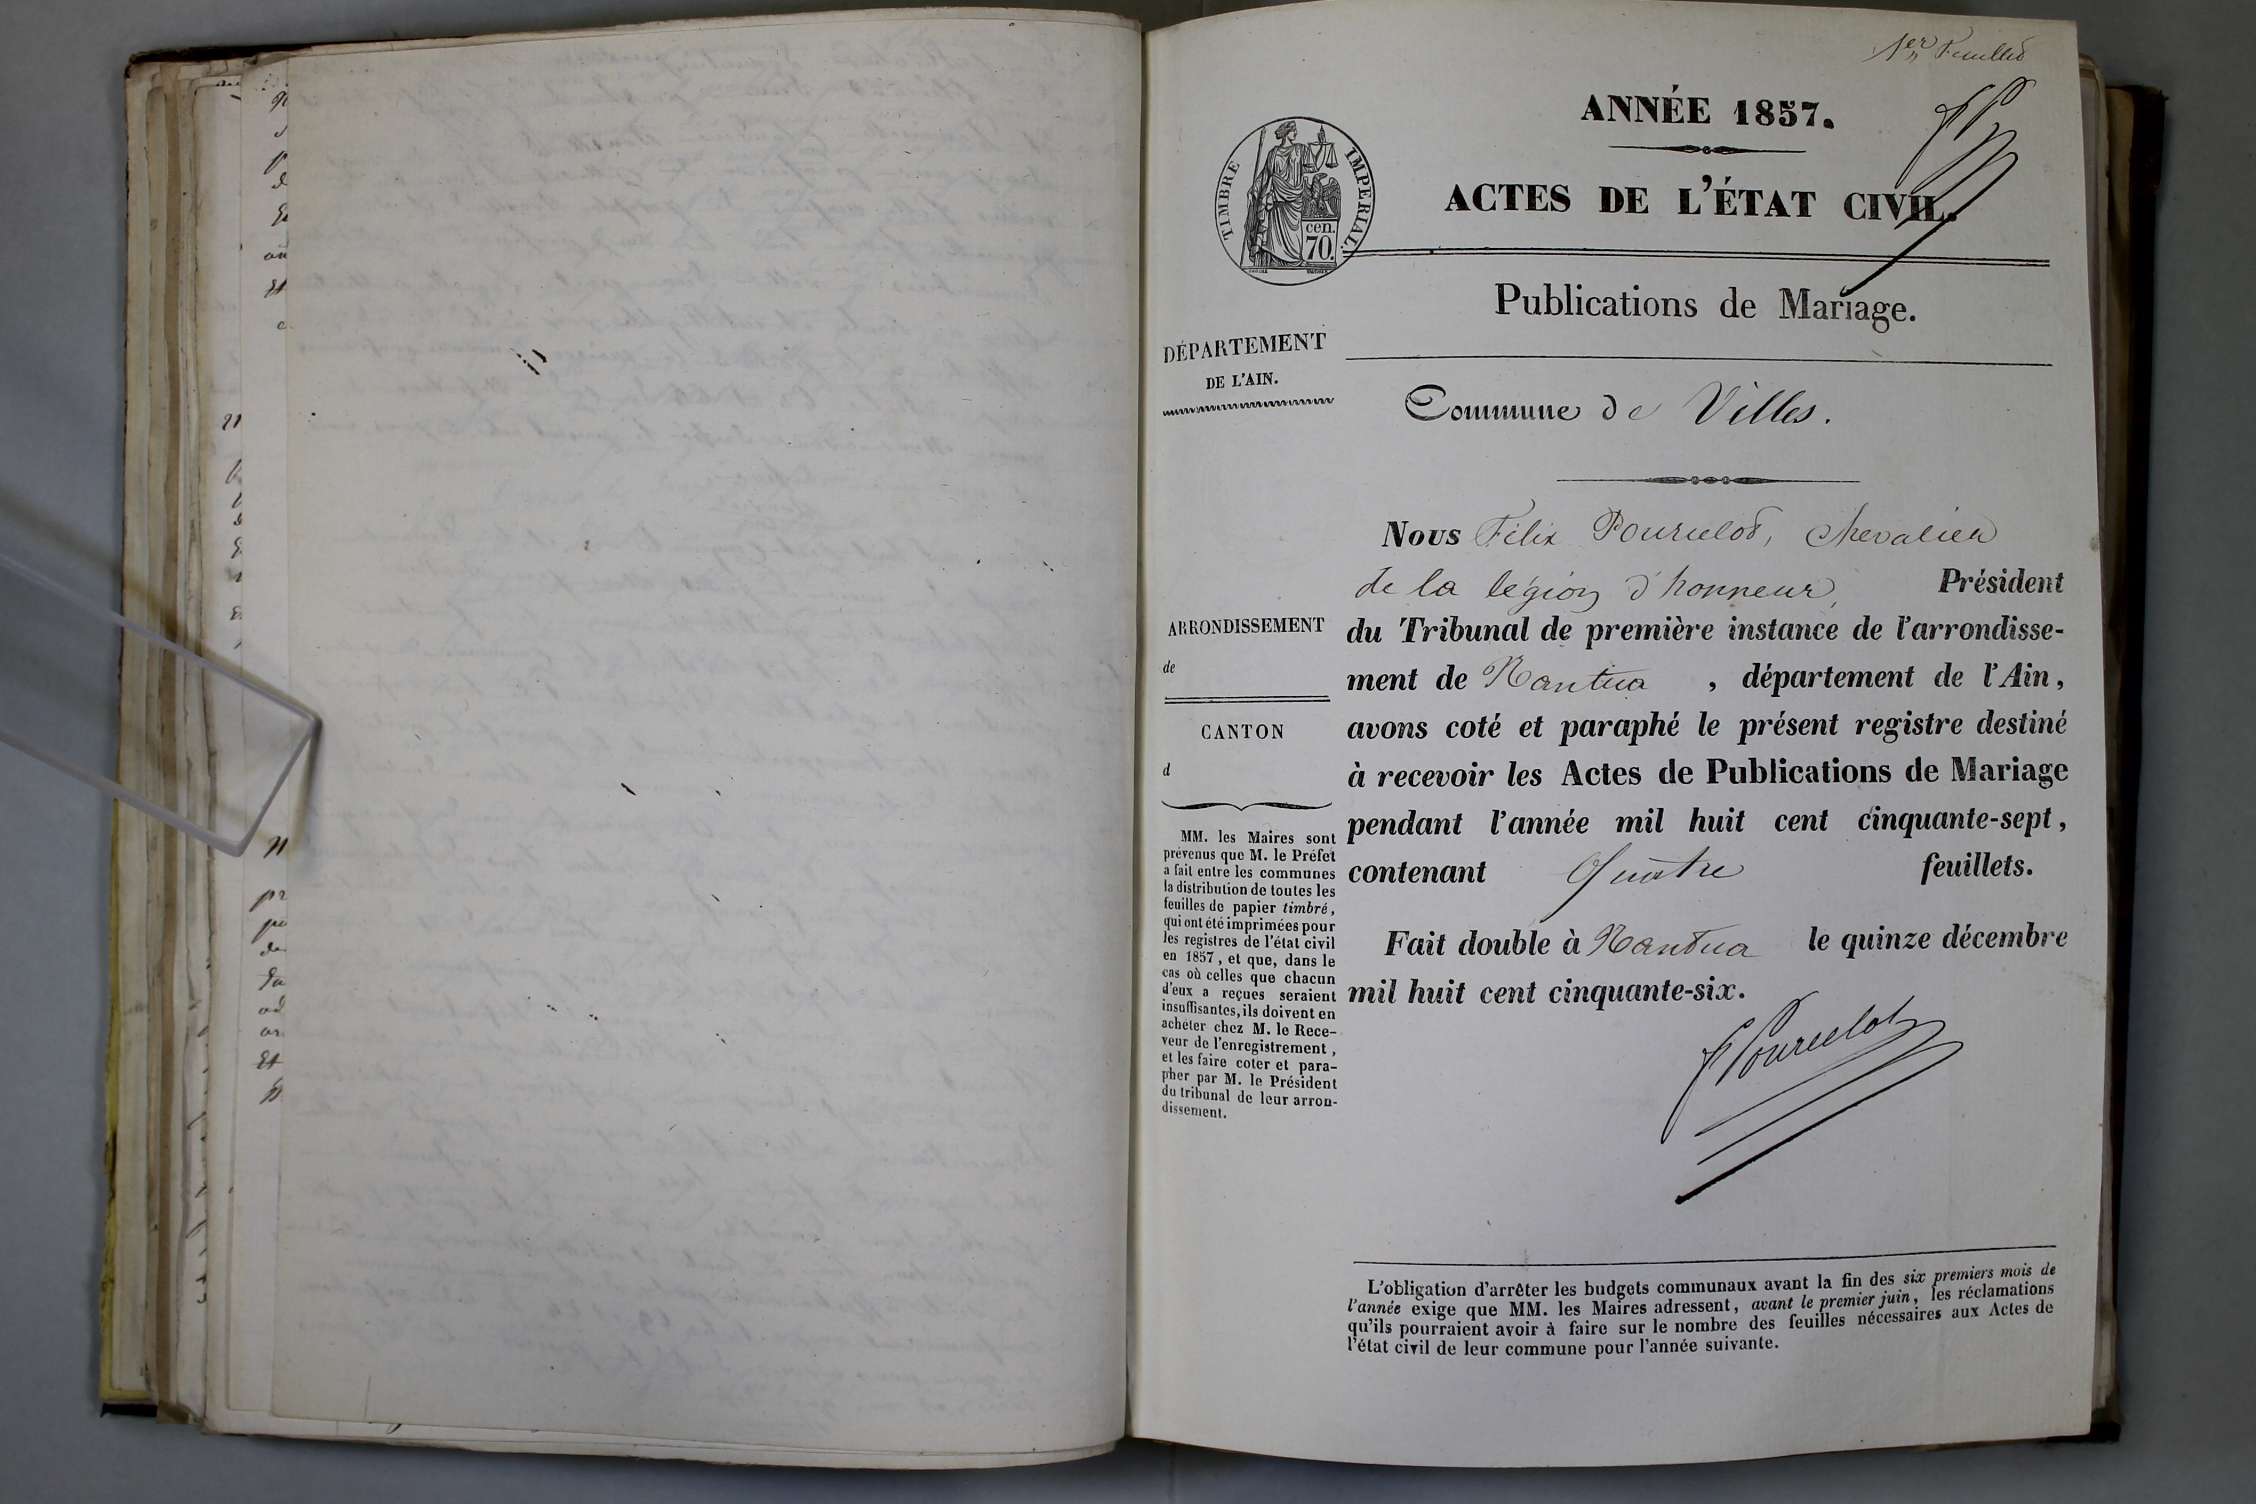 1er Feuillet
ANNÉE 1857.
ACTES DE L'ÉTAT CIVIL.
TIMBRE IMPERIAL.
cen.
70.
Publications de Mariage.
DÉPARTEMENT
DE L'AIN.
Commune de Villes.
Nous Félix Pourcelot, chevalier
de la légion d'honneur, Président
du Tribunal de première instance de l'arrondisse-
ment de Nantua , département de l'Ain,
avons coté et paraphé le présent registre destiné
à recevoir les Actes de Publications de Mariage
pendant l'année mil huit cent cinquante-sept,
contenant Quatre feuillets.
Fait double à Nantua le quinze décembre
mil huit cent cinquante-six.
F Pourcelot
ARRONDISSEMENT
de
CANTON
d
MM. les Maires sont
prévenus que M. le Préfet
a fait entre les communes
la distribution de toutes les
feuilles de papier timbré,
qui ont été imprimées pour
les registres de l'état civil
en 1857, et que, dans le
cas où celles que chacun
d'eux a reçues seraient
insuffisantes, ils doivent en
acheter chez M. le Rece-
veur de l'enregistrement,
et les faire coter et para-
pher par M. le Président
du tribunal de leur arron-
dissement.
L'obligation d'arrêter les budgets communaux avant la fin des six premiers mois de
l'année exige que MM. les Maires adressent, avant le premier juin, les réclamations
qu'ils pourraient avoir à faire sur le nombre des feuilles nécessaires aux Actes de
l'état civil de leur commune pour l'année suivante.